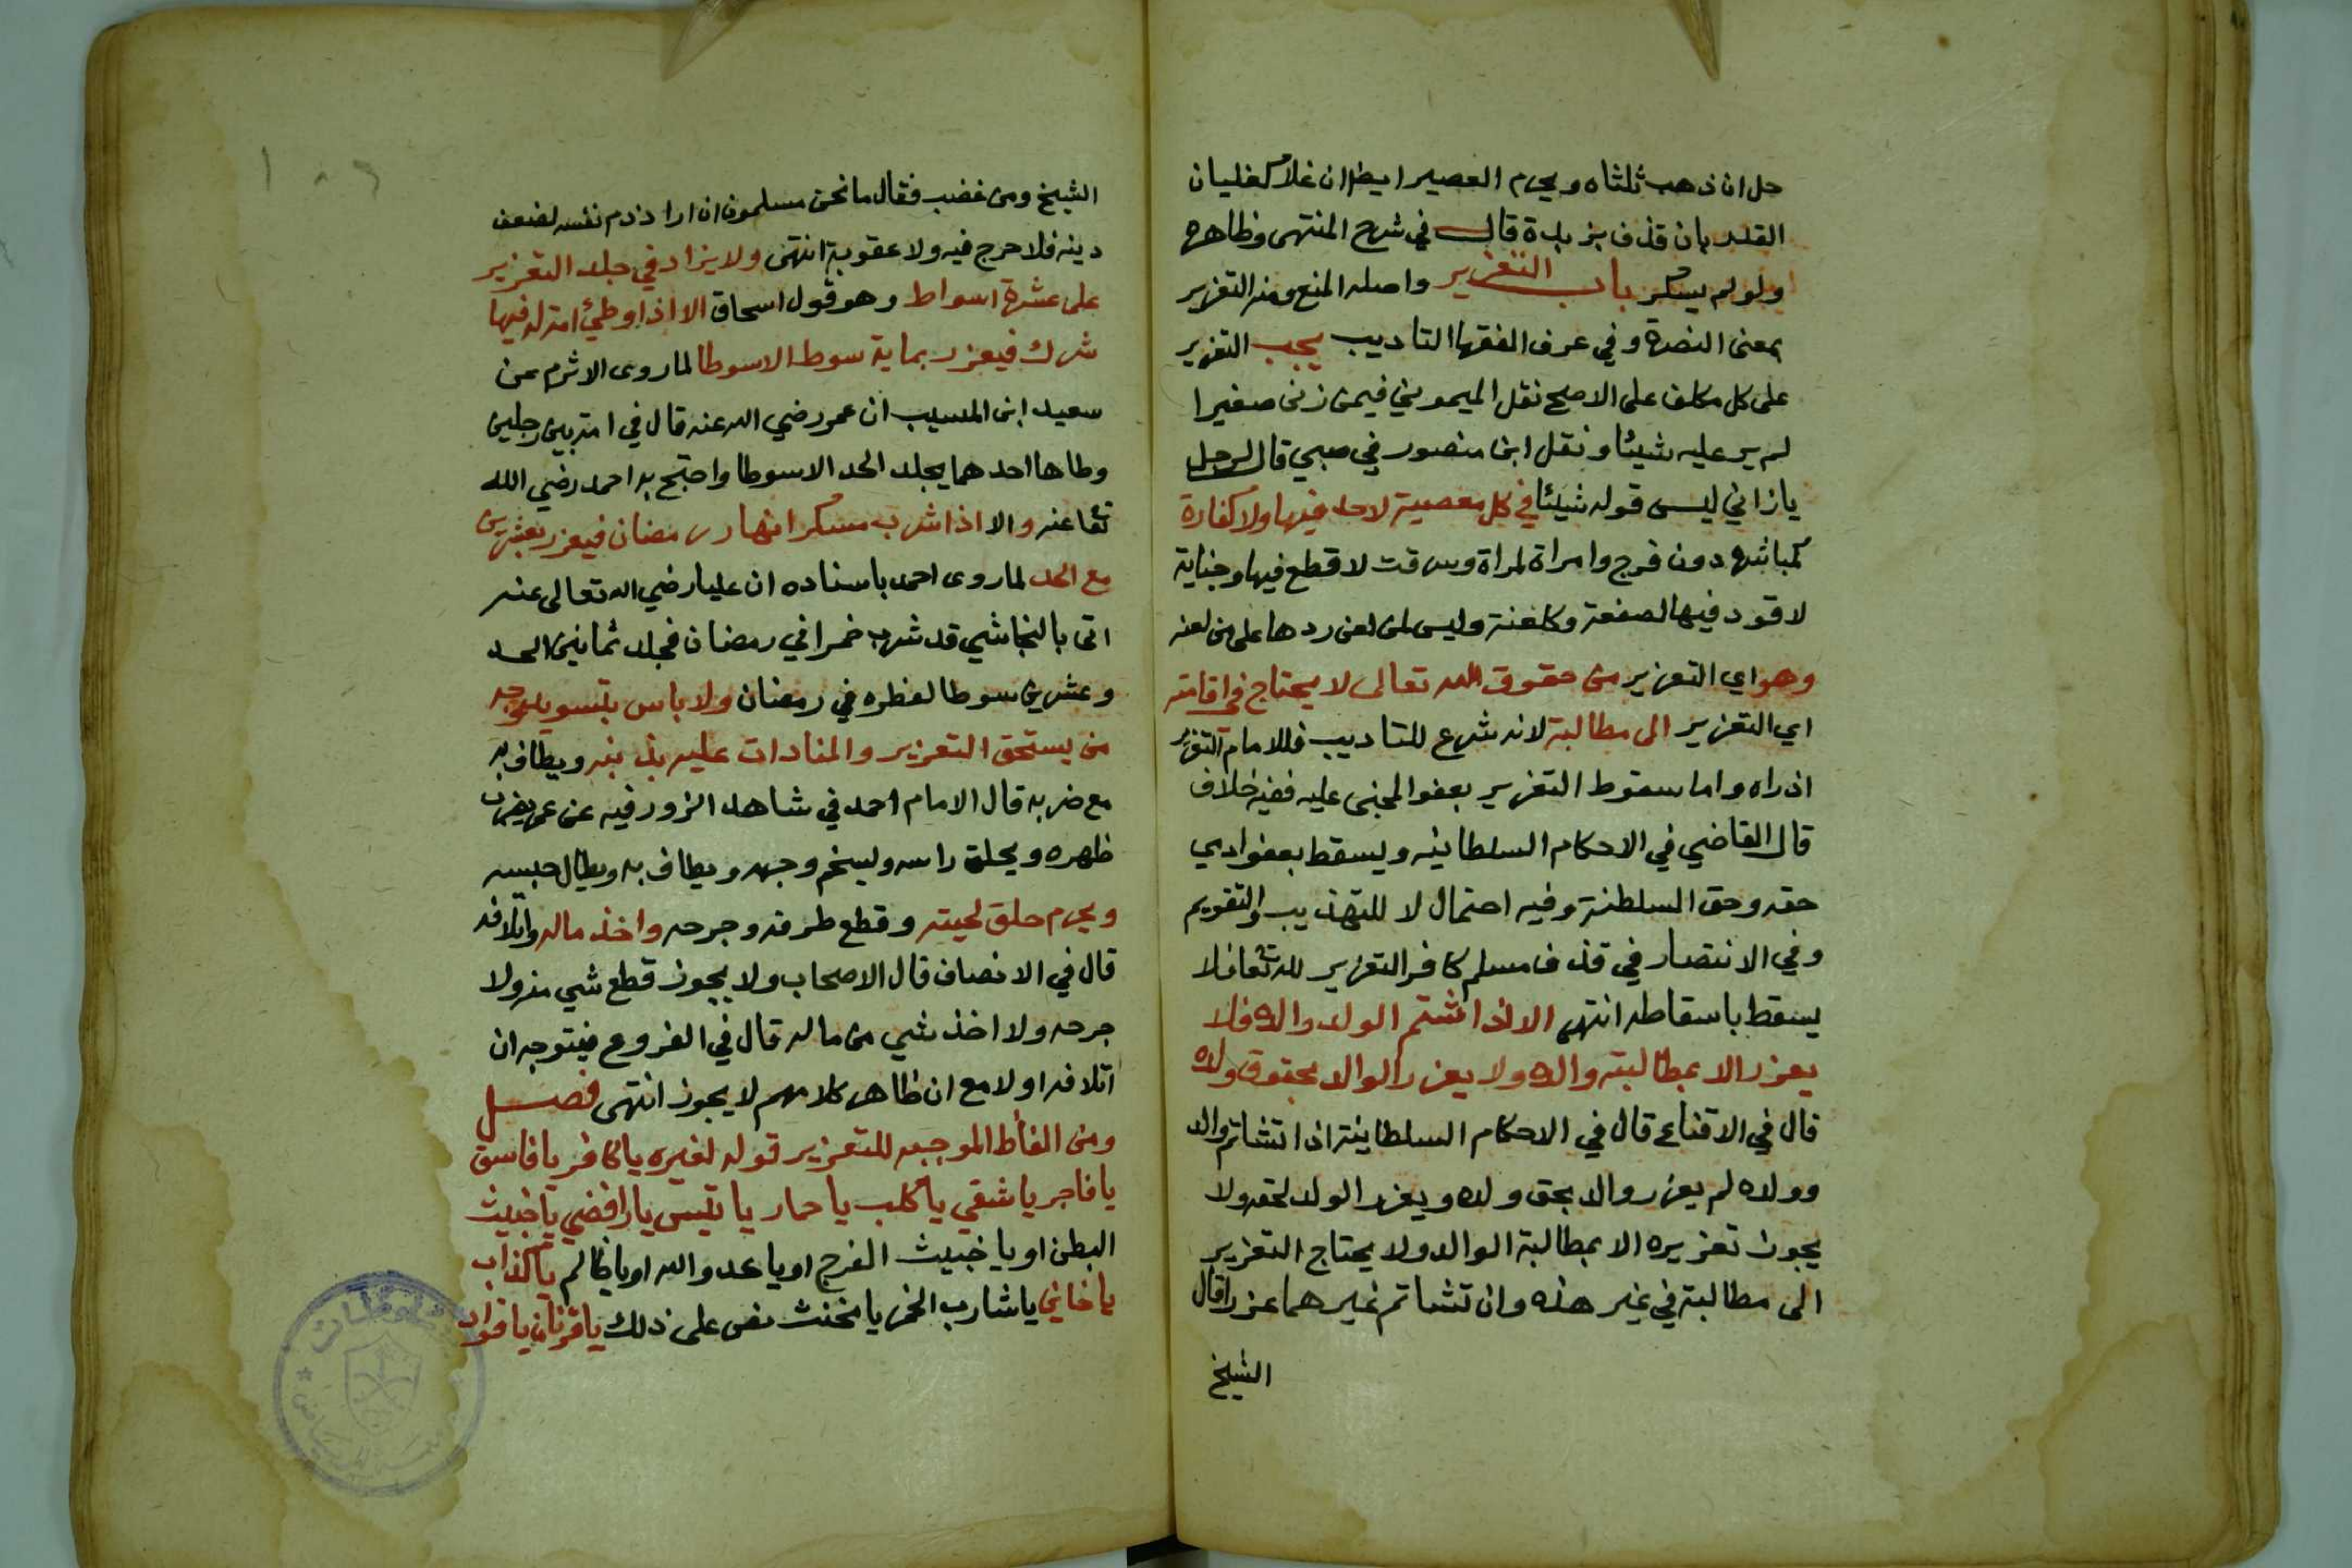 حل ان ذهب ثلثاه ويحرم العصير ايضا ان غلا كغليان
القدر بان قذف بزبدة قال في شرح المنتهى وظاهره
ولو لم يسكر باب التعزير واصله المنع ومنه التعزير
بمعنى النصرة وفي عرف الفقها التاديب يجب التعزير
على كل مكلف على الاصح نقل الميموني فيمن زنى صغيرا
لم ير عليه شيئا ونقل ابن منصور في صبي قال لرجل
يا زاني ليس قوله شيئا في كل معصية لا حد فيها ولا كفارة
كمباشرة دون فرج وامراة لمراة وسرقت لا قطع فيها وجناية
لا قود فيها لصفعة وكلعنة وليس لمن لعن ردها على من لعنه
وهو اي التعزير من حقوق الله تعالى لا يحتاج في اقامته
اي التعزير الى مطالبة لانه شرع للتاديب فللامام التعزير
اذ راه واما سقوط التعزير بعفو المجنى عليه ففيه خلاف
قال القاضي في الاحكام السلطانيه ويسقط بعفو ادمي
حقه وحق السلطنة وفيه احتمال لا للتهذيب والتقويم
وفي الانتصار في قذف مسلم كافر التعزير لله تعا فلا
يسقط باسقاطه انتهى الا اذا شتم الولد والده فلا
يعزر الا بمطالبة والده ولا يعزر الوالد بحقوق ولده
قال في الاقناع قال في الاحكام السلطانية اذا تشاتم والد
وولده لم يعزر والد بحق ولده ويعزر الولد لحقه ولا
يجوز تعزيره الا بمطالبة الوالد ولا يحتاج التعزير
الى مطالبة في غير هذه وان تشاتم غيرهما عزرا قال
الشيخ
١٠٦
الشيخ ومن غضب فقال ما نحن مسلمون ان اراد ذم نفسه لضعف
دينه فلا حرج فيه ولا عقوبة انتهى ولا يزاد في جلد التعزير
على عشرة اسواط وهو قول اسحاق الا اذا وطئ امة له فيها
شرك فيعزر بماية سوط الا سوطا لما روى الاثرم عن
سعيد ابن المسيب ان عمر رضي الله عنه قال في امة بين رجلين
وطاها احدهما يجلد الحد الا سوطا واحتج به احمد رضي الله
تعا عنه والا اذا شرب مسكرا نهار رمضان فيعزر بعشرين
مع الحد لما روى احمد باسناده ان عليا رضي الله تعالى عنه
اتى بالنجاشي قد شرب خمرا في رمضان فجلد ثمانين الحد
وعشرين سوطا لفطره في رمضان ولا باس بتسويد وجه
من يستحق التعزير والمنادات عليه بذنبه ويطاف به
مع ضربه قال الامام احمد في شاهد الزور فيه عن عمر يضرب
ظهره ويحلق راسه ويسخم وجهه ويطاف به ويطال حبسه
ويحرم حلق لحيته وقطع طرفه وجرحه واخذ ماله واتلافه
قال في الانصاف قال الاصحاب ولا يجوز قطع شي منه ولا
جرحه ولا اخذ شي من ماله قال في الفروع فيتوجه ان
اتلافه اولا مع ان ظاهر كلامهم لا يجوز انتهى فصل
ومن الفاظ الموجبه للتعزير قوله لغيره يا كافر يا فاسق
يا فاجر يا شقي يا كلب يا حمار يا تيس يا رافضي يا خبيث
البطن او يا خبيث الفرج او يا عدو الله او يا ظالم يا كذاب
يا خاني يا شارب الخمر يا مخنث نص على ذلك يا قرنان يا قواد